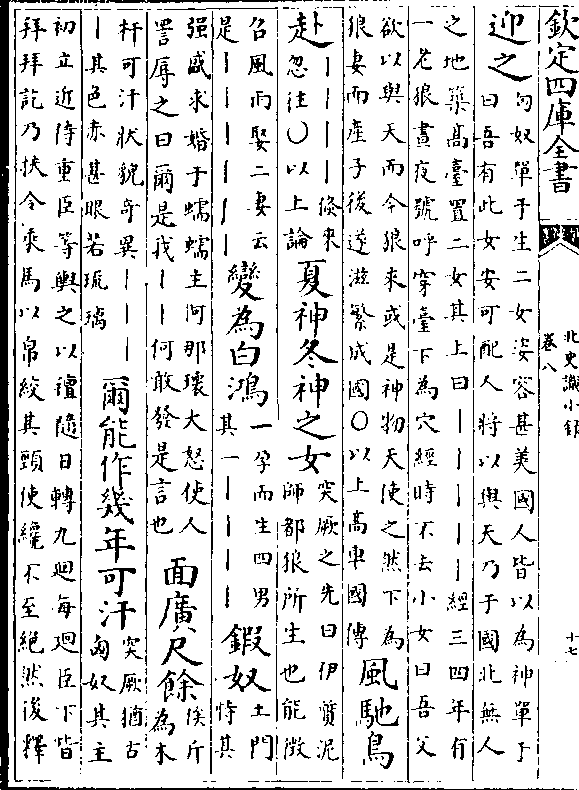 欽定四庫全書
北史識小録
卷八
十七
迎之
匈奴單于生二女姿容甚美國人皆以為神單于
曰吾有此女安可配人將以與天乃于國北無人
之地築髙臺置二女其上曰｜｜｜｜｜經三四年有
一老狼晝夜號呼穿臺下為穴經時不去小女曰吾父
欲以與天而今狼來或是神物天使之然下為
狼妻而産子後遂滋繁成國〇以上髙車國傳
風馳鳥
赴
｜｜｜｜倐來
忽往〇以上論
夏神冬神之女
突厥之先曰伊質泥
師都狼所生也能徴
召風雨娶二妻云
是｜｜｜｜｜｜
變為白鴻
一孕而生四男
其一｜｜｜｜
鍜奴
土門
恃其
强盛求婚于蠕蠕主阿那瓌大怒使人
詈辱之曰爾是我｜｜何敢發是言也
面廣尺餘
俟斤
為木
杆可汗狀貌奇異｜｜｜
｜其色赤甚眼若琉璃
爾能作幾年可汗
突厥猶古
匈奴其主
初立近侍重臣等輿之以氊隨日轉九廻每廻臣下皆
拜拜訖乃扶令乘馬以帛絞其頸使纔不至絶然後釋